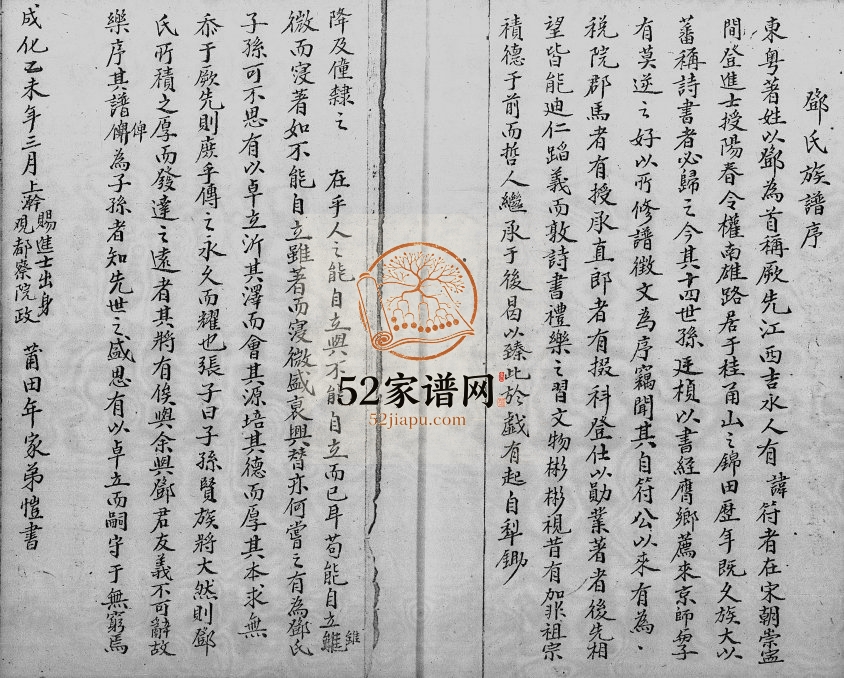 鄧氏族譜序
東粵著姓以鄧為首稱厥先江西吉水人有諱符者在宋朝崇寧
間登進士授陽春令權南雄路居于桂甬山之錦田歷年既久族大以
蕃稱詩書者必歸之今其十四世孫廷楨以書經膺鄉薦來京師與予
有莫逆之好以所修譜徵文為序竊聞其自符公以來有為、
稅院郡馬者有授承直郎者有掇科登仕以勛業著者後先相
望皆能迪仁蹈義而敦詩書禮樂之習文物彬彬視昔有加非祖宗
積德于前而哲人繼承于後曷以臻此於戲有起自犁鋤
降及僮隸之 在乎人之能自立與不能自立而已耳苟能自立雖
微而寖著如不能自立雖著而寖微盛衰興替亦何嘗之有為鄧氏
子孫可不思有以卓立沂其澤而會其源培其德而厚其本求無
忝于厥先則庶乎傳之永久而耀也張子曰子孫賢族將大然則鄧
氏所積之厚而發達之遠者其將有俟與余與鄧君友義不可辭故
樂序其譜俾為子孫者知先世之盛思有以卓立而嗣守于無窮焉
成化乙未年三月上澣賜進士出身觀都察院政 莆田年家弟愷書
52家谱网
52jiapu.com